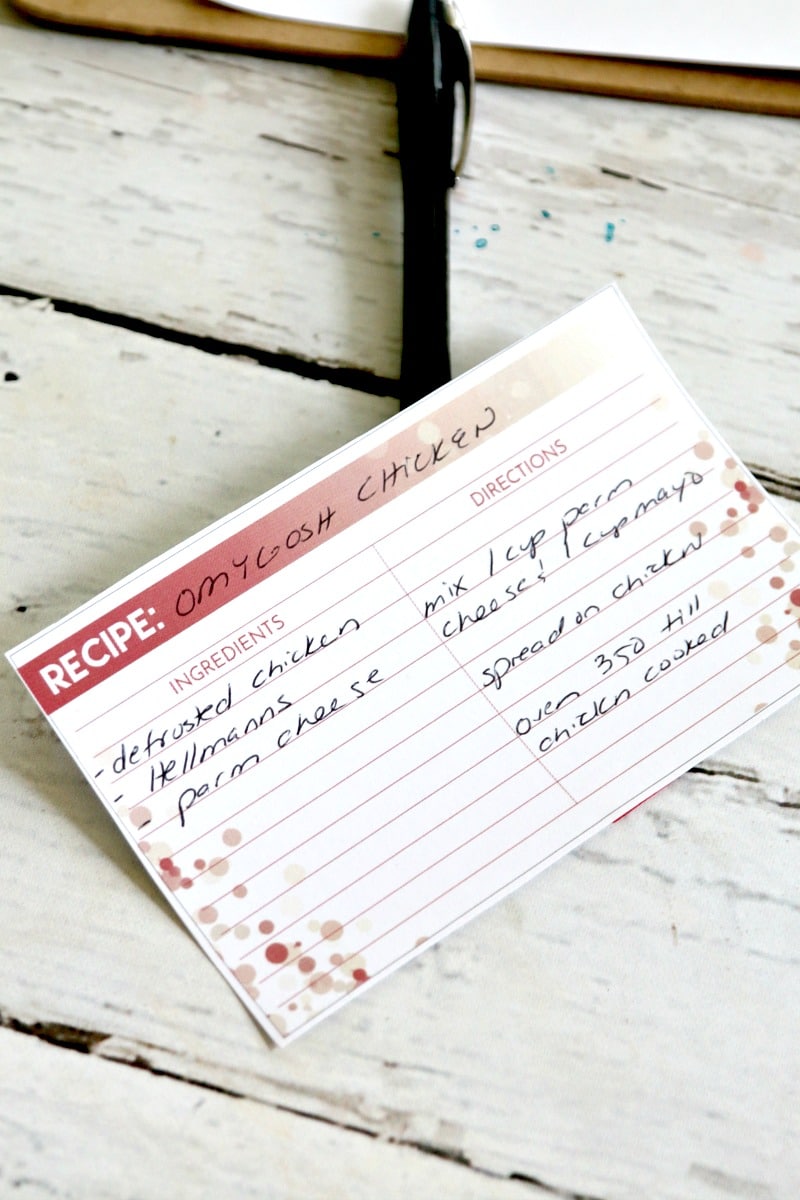 RECIPE: OMYGOSH CHICKEN
INGREDIENTS
- defrosted chicken
- Hellmanns
- parm cheese
DIRECTIONS
mix 1 cup parm
cheese & 1 cup mayo
spread on chickn
oven 350 till
chickn cooked